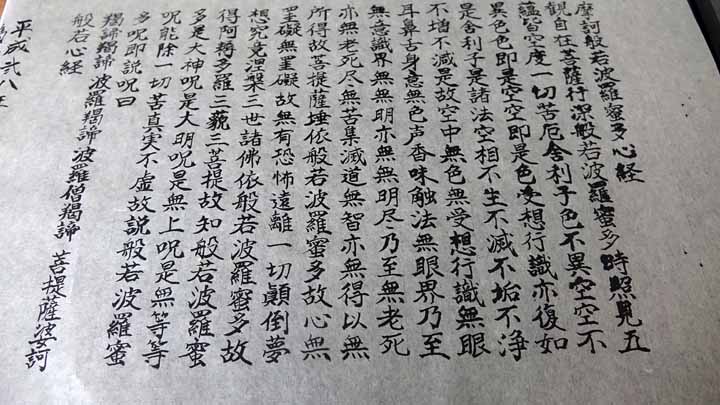 摩訶般若波羅蜜多心経
観自在菩薩行深般若波羅蜜多時照見五
蘊皆空度一切苦厄舎利子色不異空空不
異色色即是空空即是色受想行識亦復如
是舎利子是諸法空相不生不滅不垢不浄
不増不減是故空中無色無受想行識無眼
耳鼻舌身意無色声香味触法無眼界乃至
無意識界無無明亦無無明尽乃至無老死
亦無老死尽無苦集滅道無智亦無得以無
所得故菩提薩埵依般若波羅蜜多故心無
罣礙無罣礙故無有恐怖遠離一切顛倒夢
想究竟涅槃三世諸佛依般若波羅蜜多故
得阿耨多羅三藐三菩提故知般若波羅蜜
多是大神呪是大明呪是無上呪是無等等
呪能除一切苦真実不虚故説般若波羅蜜
多呪即説呪曰
羯諦羯諦 波羅羯諦 波羅僧羯諦 菩提薩婆訶
般若心経
平成弐八年